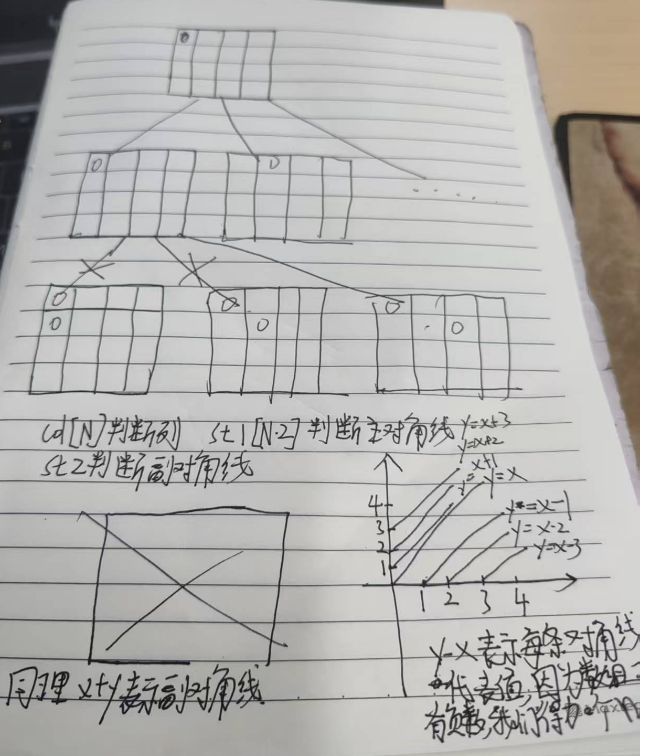 0
0
0
.....
0
0
0
0
0
0
col[N]判断列 st1[N·2]判断主对角线
st2判断副对角线
y=x+3
y=x+2
y=x+1
y=x
y=x-1
y=x-2
y=x-3
4
3
2
1
1 2 3 4
y-x表示每条对角线
代表值,因为数组
有负数,我们得加个n
同理x+y表示副对角线